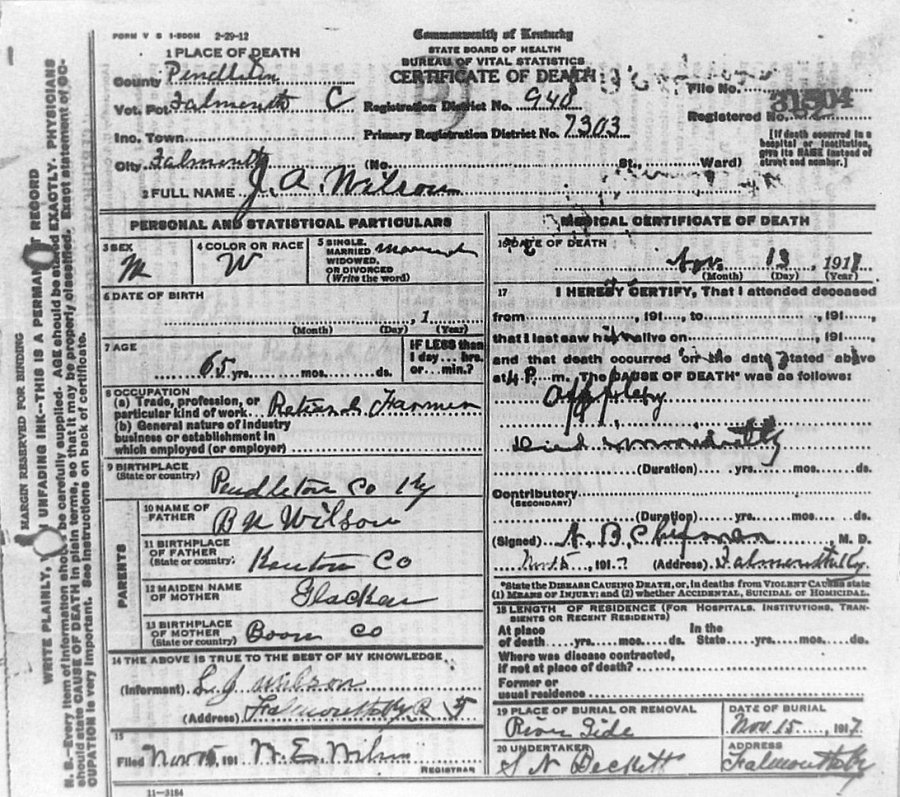 FORM V S 1-500M 2-29-12
Commonwealth of Kentucky
STATE BOARD OF HEALTH
BUREAU OF VITAL STATISTICS
CERTIFICATE OF DEATH
1 PLACE OF DEATH
County Pendleton
Vot. Pct Falmouth C
Inc. Town
City Falmouth (No. St., Ward)
Registration District No. 940
Primary Registration District No. 7303
File No.
Registered No. 31504
[If death occurred in a
hospital or institution,
give its NAME instead of
street and number.]
2 FULL NAME J. A. Wilson
PERSONAL AND STATISTICAL PARTICULARS
3 SEX
M
4 COLOR OR RACE
W
5 SINGLE,
MARRIED
WIDOWED,
OR DIVORCED
(Write the word)
Married
6 DATE OF BIRTH
, 1
(Month) (Day) (Year)
7 AGE
65 yrs. mos. ds.
IF LESS than
1 day hrs.
or min.?
8 OCCUPATION
(a) Trade, profession, or
particular kind of work Farmer
(b) General nature of industry
business or establishment in
which employed (or employer)
9 BIRTHPLACE
(State or country)
Pendleton Co Ky
PARENTS
10 NAME OF
FATHER
B N Wilson
11 BIRTHPLACE
OF FATHER
(State or country)
Kenton Co
12 MAIDEN NAME
OF MOTHER
13 BIRTHPLACE
OF MOTHER
(State or country)
Boon Co
14 THE ABOVE IS TRUE TO THE BEST OF MY KNOWLEDGE
(Informant) L J Wilson
(Address) Falmouth Ky R 5
15
Filed Nov 15, 191 W. E. Wilson
REGISTRAR
11-3184
MEDICAL CERTIFICATE OF DEATH
16 DATE OF DEATH
Nov. 13, 1917
(Month) (Day) (Year)
17 I HEREBY CERTIFY, That I attended deceased
from , 191 , to , 191 ,
that I last saw him alive on , 191 ,
and that death occurred on the date stated above
at 4 P. m. The CAUSE OF DEATH* was as follows:
Died immediately
(Duration) yrs. mos. ds.
Contributory
(SECONDARY)
(Duration) yrs. mos. ds.
(Signed) N. B. Chipman, M. D.
191 (Address) Falmouth Ky.
*State the DISEASE CAUSING DEATH, or, in deaths from VIOLENT CAUSES state
(1) MEANS OF INJURY; and (2) whether ACCIDENTAL, SUICIDAL OR HOMICIDAL.
18 LENGTH OF RESIDENCE (FOR HOSPITALS, INSTITUTIONS, TRAN-
SIENTS OR RECENT RESIDENTS)
At place In the
of death yrs. mos. ds. State yrs. mos. ds.
Where was disease contracted,
if not at place of death?
Former or
usual residence
19 PLACE OF BURIAL OR REMOVAL
River Side
DATE OF BURIAL
Nov. 15, 1917
20 UNDERTAKER
S N Beckett
ADDRESS
Falmouth Ky
MARGIN RESERVED FOR BINDING
WRITE PLAINLY, WITH UNFADING INK--THIS IS A PERMANENT RECORD
N. B.--Every item of information should be carefully supplied. AGE should be stated EXACTLY. PHYSICIANS
should state CAUSE OF DEATH in plain terms, so that it may be properly classified. Exact statement of OC-
CUPATION is very important. See instructions on back of certificate.